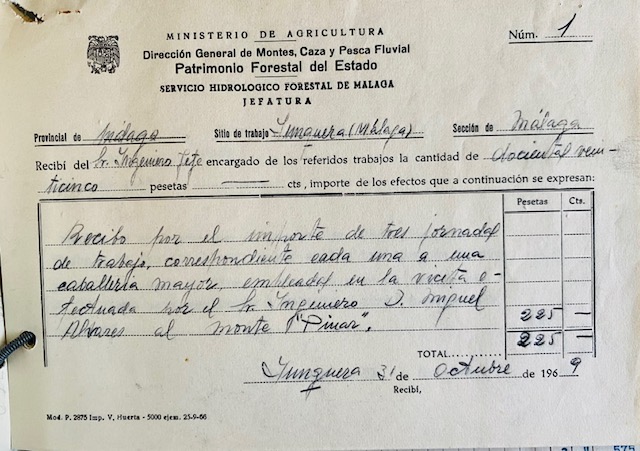 MINISTERIO DE AGRICULTURA
Núm. 1
Dirección General de Montes, Caza y Pesca Fluvial
Patrimonio Forestal del Estado
SERVICIO HIDROLOGICO FORESTAL DE MALAGA
JEFATURA
Provincial de Málaga Sitio de trabajo Yunquera (Málaga) Sección de Málaga
Recibí del Sr. Ingeniero Jefe encargado de los referidos trabajos la cantidad de dociental vein-
ticinco pesetas — cts, importe de los efectos que a continuación se expresan:
Pesetas Cts.
Recibo por el importe de tres jornadas
de trabajo, correspondiente cada una a una
caballería mayor, empleadas en la visita e-
fectuada por el Sr. Ingeniero D. Miguel
Alvares al monte "Pinar". 225 —
TOTAL 225 —
Yunquera 31 de Octubre de 1969
Recibí,
Mod. P. 2875 Imp. V. Huerta - 5000 ejem. 25-9-66
575